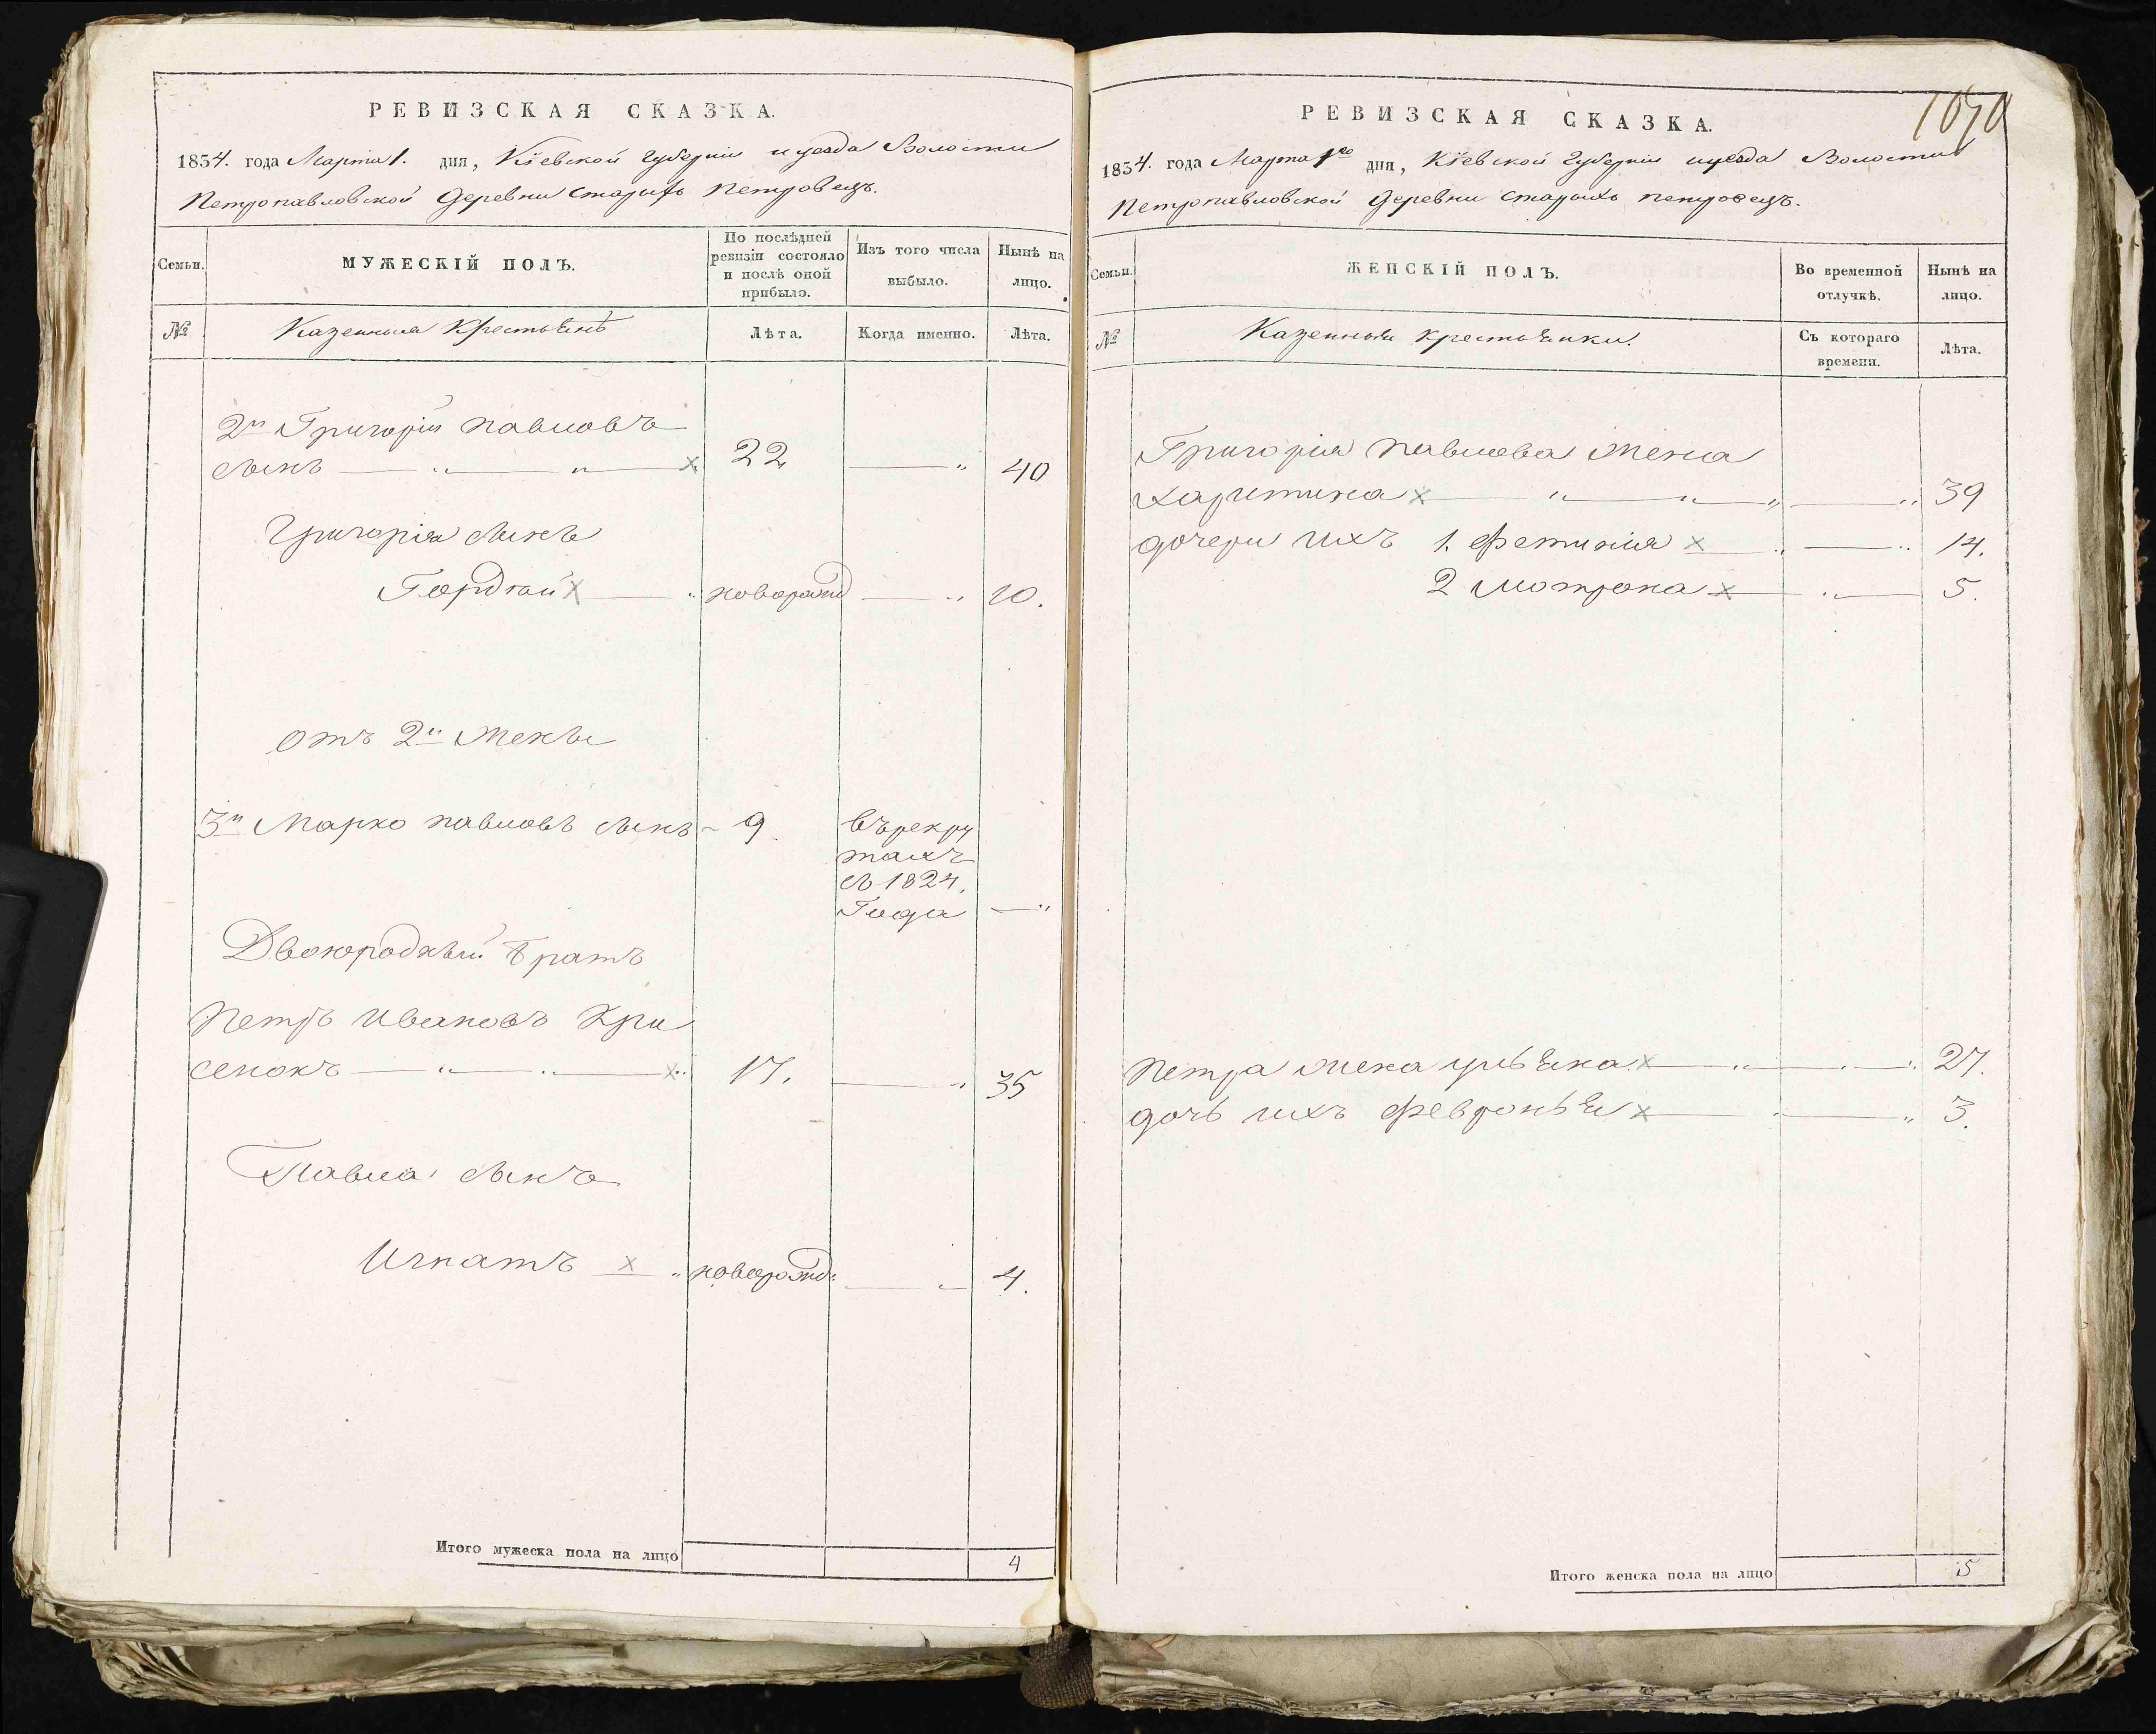 РЕВИЗСКАЯ СКАЗКА.
1834. года Марта 1. дня, Кіевской Губерніи и уезда Волости
Петропавловской Деревни Старыхъ Петровецъ.
Семьи.
МУЖЕСКІЙ ПОЛЪ.
По послѣдней
ревизіи состояло
и послѣ оной
прибыло.
Изъ того числа
выбыло.
Нынѣ на
лицо.
№
Казенныя Крестьянѣ
Лѣта.
Когда именно.
Лѣта.
2й Григорій Павловъ
сынъ — " — " — х 22 — " 40
Григорія сынъ
Гордѣй х — " новорожд — " 10.
отъ 2й Жены
3й Марко Павловъ сынъ — 9.
въ рекру
тахъ
съ 1824.
Года — "
Двоюродный братъ
Петръ Ивановъ Кри
сенокъ — " — " — х " 17. — " 35
Павла сынъ
Игнатъ х " новорожд. — " 4.
Итого мужеска пола на лицо 4
РЕВИЗСКАЯ СКАЗКА.
1834. года Марта 1го дня, Кіевской Губерніи и уезда Волости
Петропавловской Деревни Старыхъ Петровецъ.
Семьи.
ЖЕНСКІЙ ПОЛЪ.
Во временной
отлучкѣ.
Нынѣ на
лицо.
№
Казенныя крестьянки.
Съ котораго
времени.
Лѣта.
Григорія Павлова Жена
Харитина х — " — " — " — " 39
дочери ихъ 1. Фетинія х — " — " 14.
2 Мотрона х — " — 5.
Петра жена Ульяна х — " — " — " 27.
дочь ихъ Февронья х — " — " 3.
Итого женска пола на лицо 5